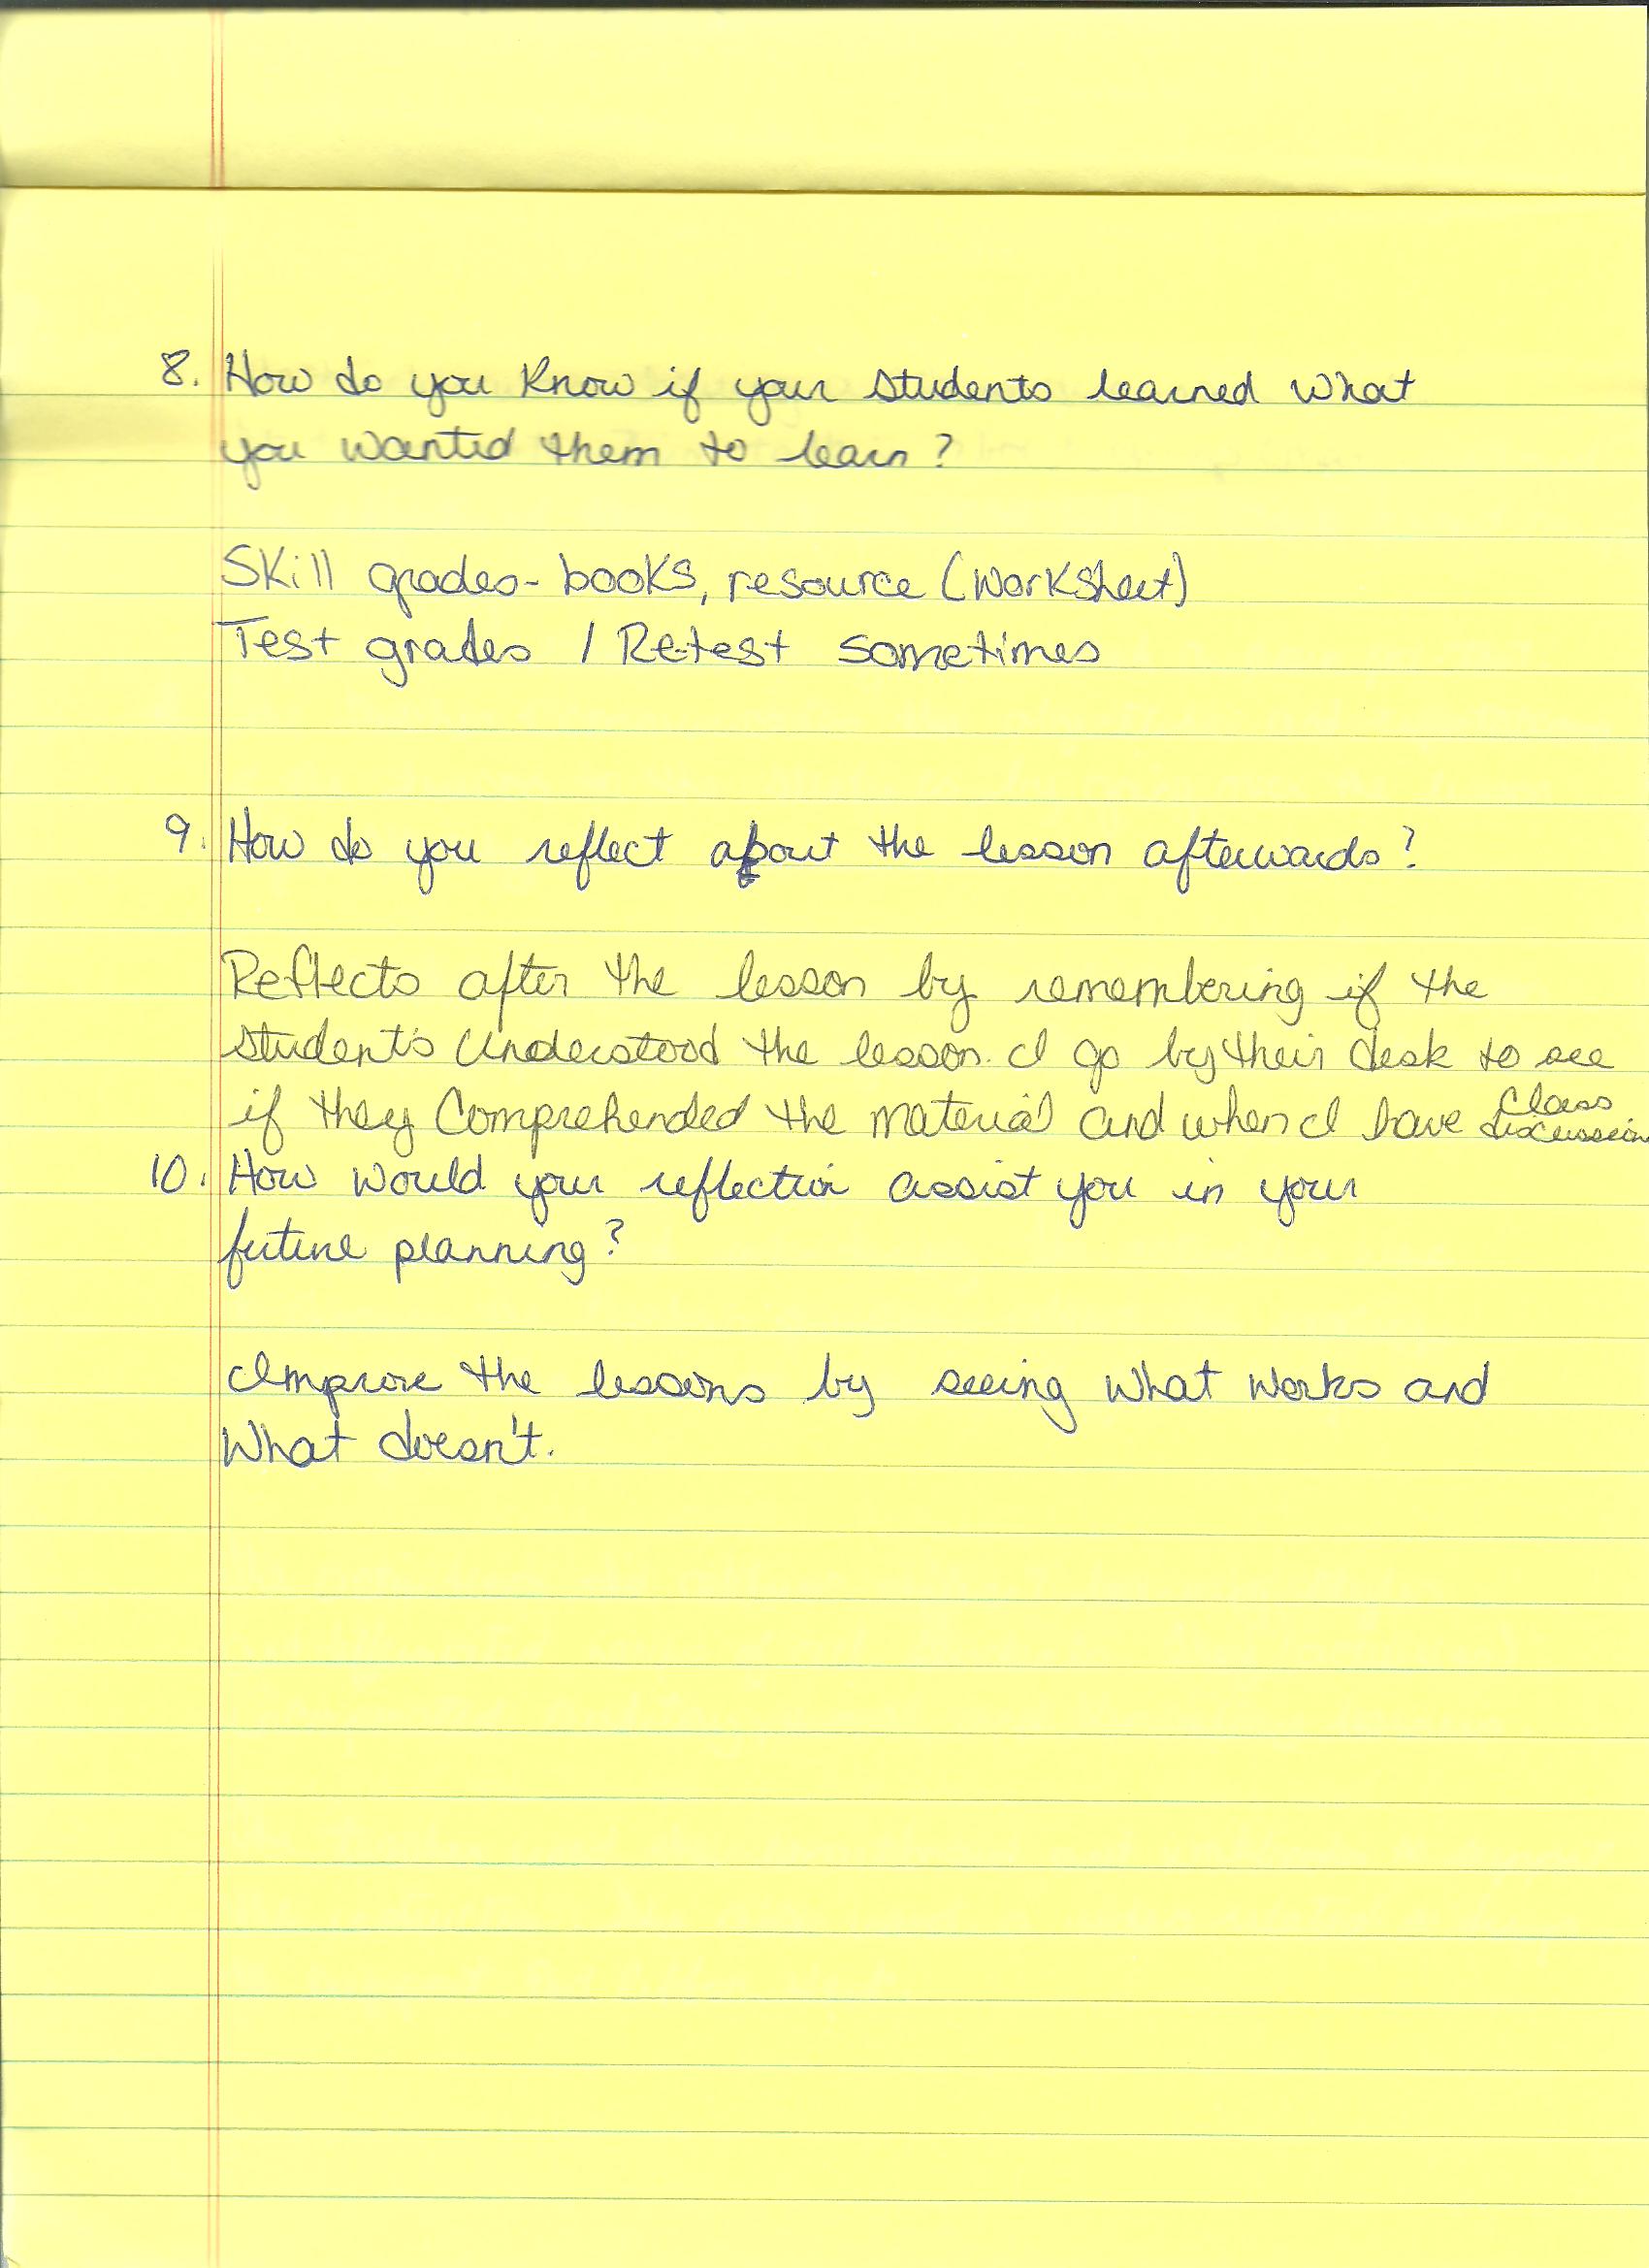 8. How do you know if your students learned what
you wanted them to learn?
Skill grades- books, resource (worksheet)
Test grades / Retest sometimes
9. How do you reflect about the lesson afterwards?
Reflects after the lesson by remembering if the
students understood the lesson. I go by their desk to see
if they comprehended the material and when I have class discussion
10. How would your reflection assist you in your
future planning?
Improve the lessons by seeing what works and
what doesn't.